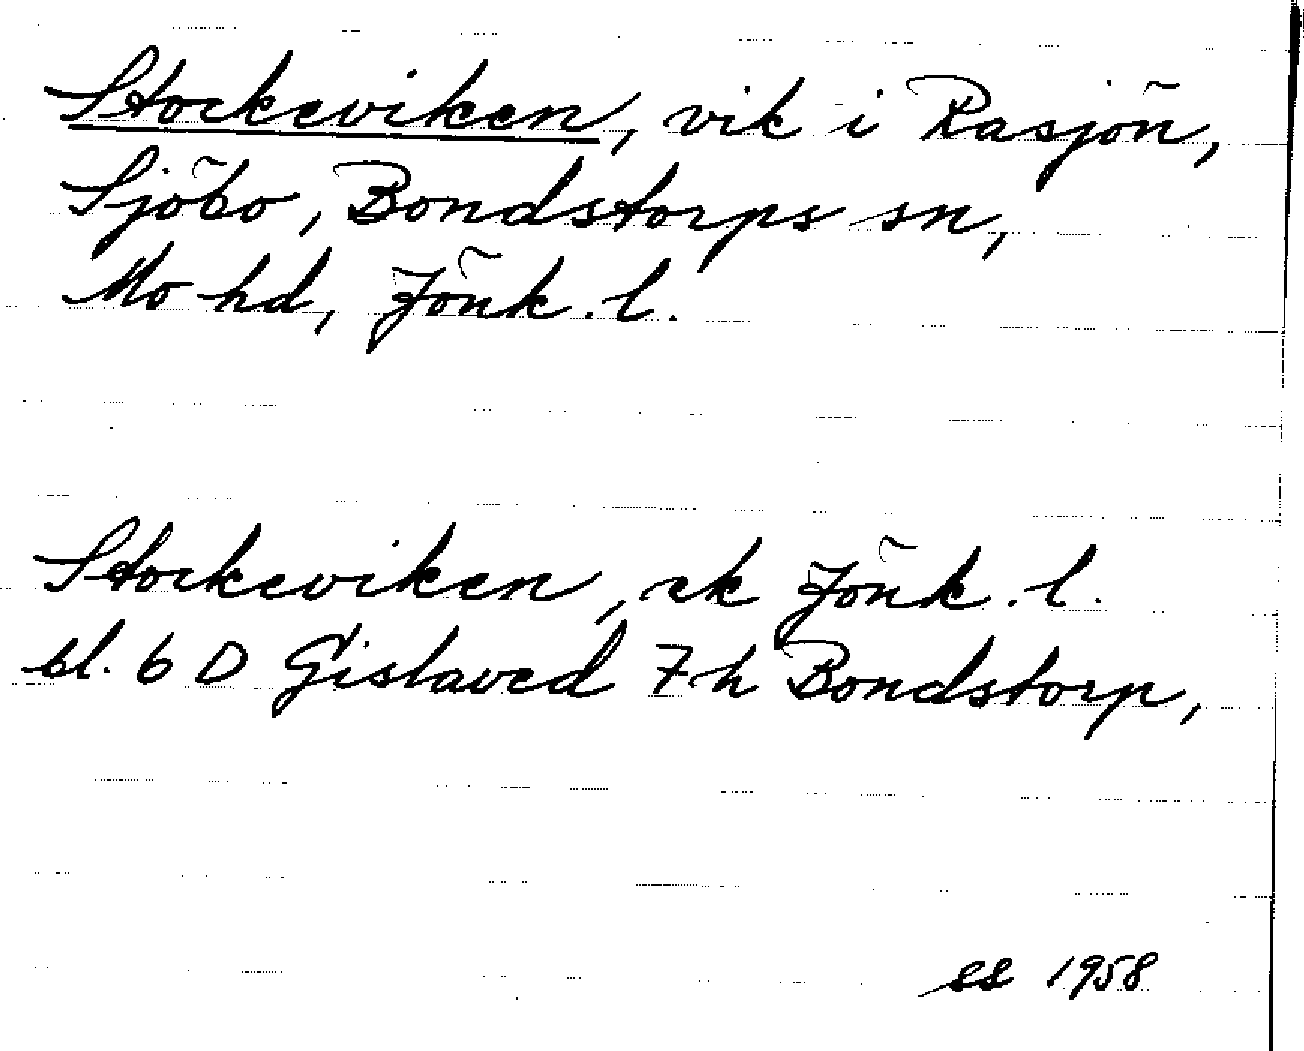 Stockeviken, vik i Rasjön,
Sjöbo, Bondstorps sn,
Mo hd, Jönk. l.
Stockeviken, ek Jönk. l.
bl. 6 D Gislaved 7 h Bondstorp,
ss 1958